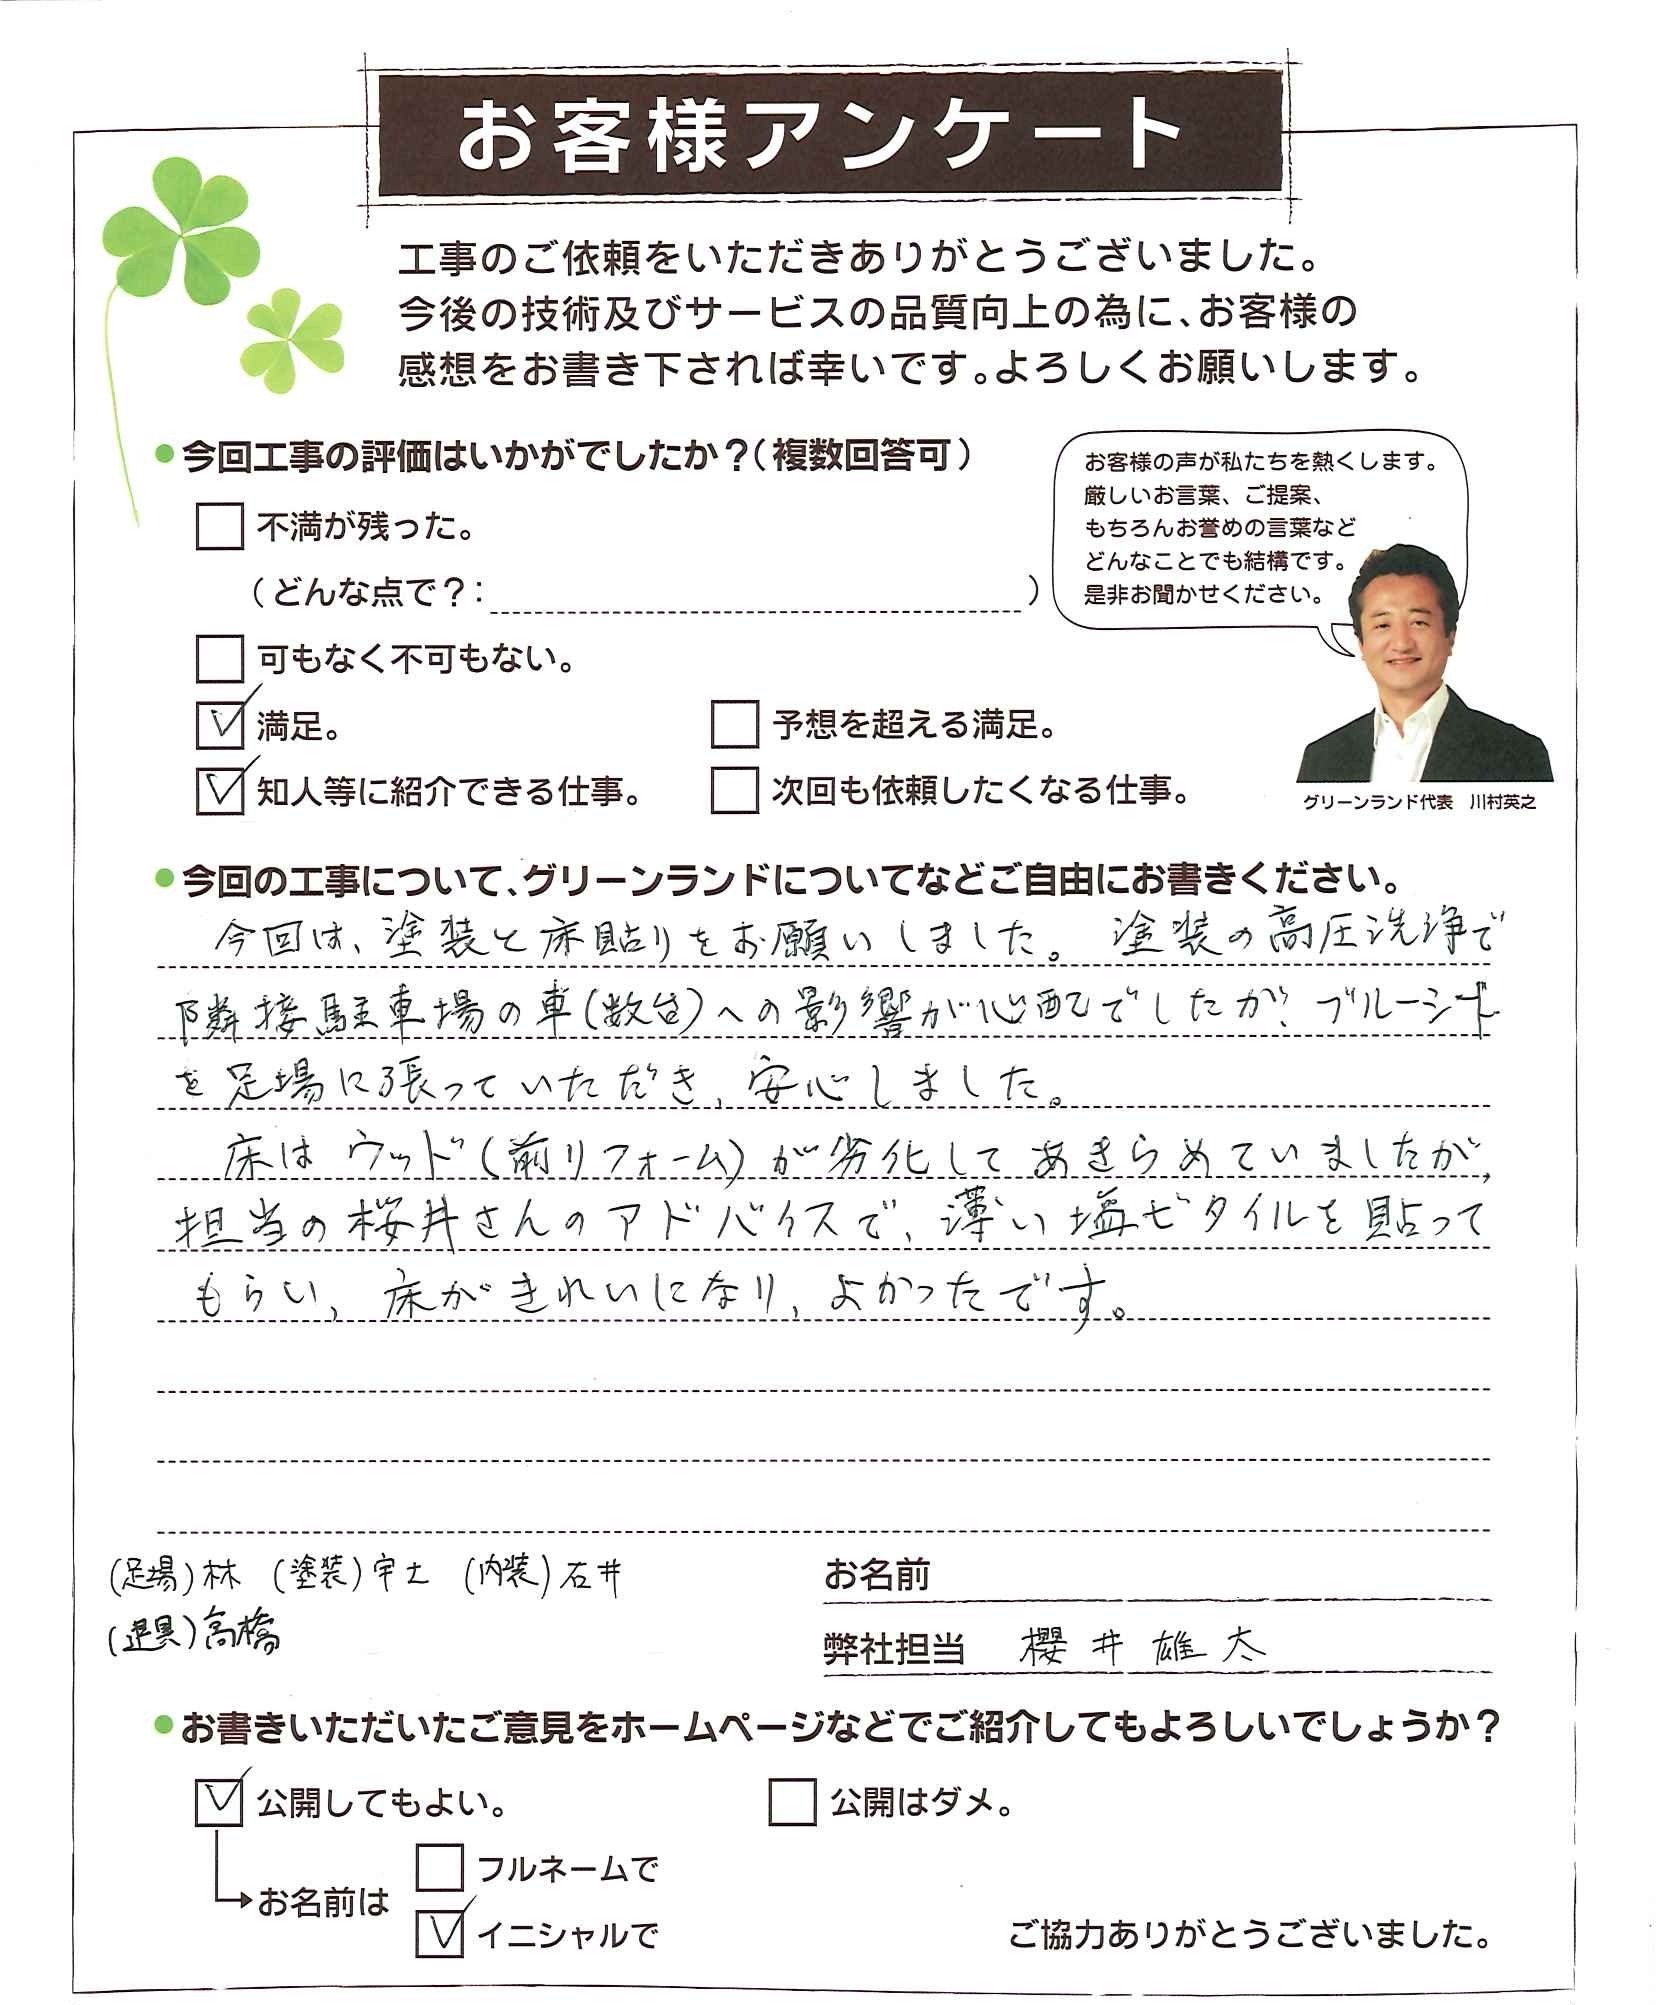 お客様アンケート
工事のご依頼をいただきありがとうございました。
今後の技術及びサービスの品質向上の為に、お客様の
感想をお書き下されば幸いです。よろしくお願いします。
●今回工事の評価はいかがでしたか？（複数回答可）
不満が残った。
（どんな点で？：　）
可もなく不可もない。
満足。
予想を超える満足。
知人等に紹介できる仕事。
次回も依頼したくなる仕事。
お客様の声が私たちを熱くします。
厳しいお言葉、ご提案、
もちろんお誉めの言葉など
どんなことでも結構です。
是非お聞かせください。
グリーンランド代表　川村英之
●今回の工事について、グリーンランドについてなどご自由にお書きください。
今回は、塗装と床貼りをお願いしました。塗装の高圧洗浄で
隣接駐車場の車(数台)への影響が心配でしたが、ブルーシート
を足場に張っていただき、安心しました。
床はウッド(前リフォーム)が劣化してあきらめていましたが、
担当の桜井さんのアドバイスで、薄い塩ビタイルを貼って
もらい、床がきれいになり、よかったです。
(足場)林 (塗装)宇土 (内装)石井
(建具)高橋
お名前
弊社担当 櫻井雄太
●お書きいただいたご意見をホームページなどでご紹介してもよろしいでしょうか？
公開してもよい。
公開はダメ。
お名前は
フルネームで
イニシャルで
ご協力ありがとうございました。